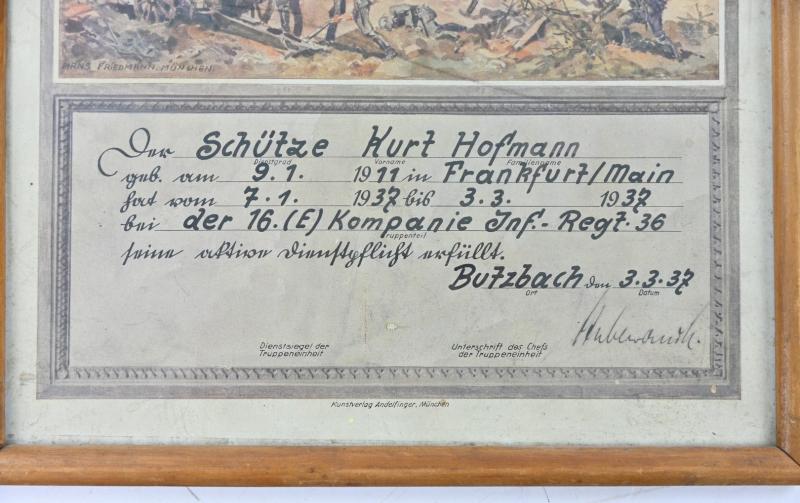 HANS FRIEDMANN. MÜNCHEN.
Der Schütze Kurt Hofmann
Dienstgrad Vorname Familienname
geb. am 9.1. 1911 in Frankfurt/Main
hat vom 7.1. 1937 bis 3.3. 1937
bei der 16.(E) Kompanie Inf.-Regt. 36
Truppenteil
seine aktive Dienstpflicht erfüllt.
Butzbach den 3.3.37
Ort Datum
Dienstsiegel der Truppeneinheit
Unterschrift des Chefs der Truppeneinheit
Kunstverlag Andelfinger, München